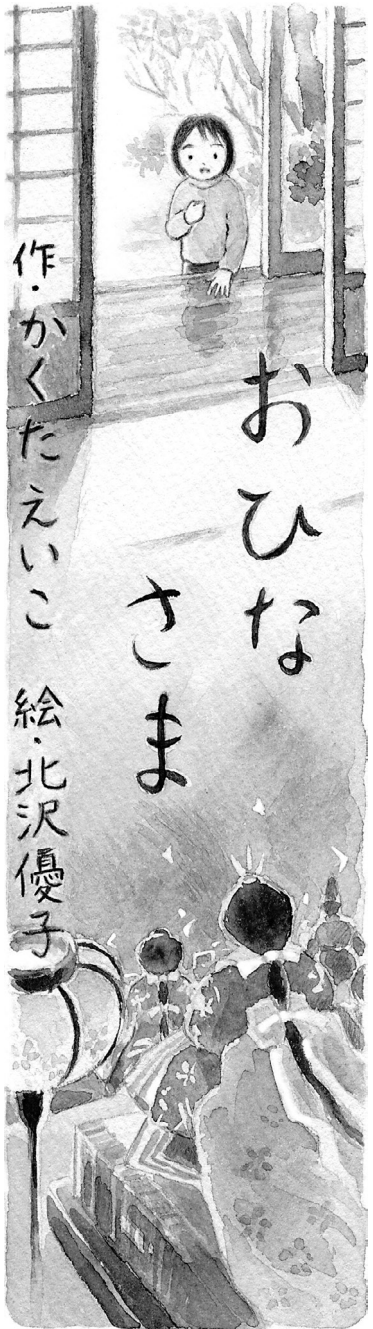 おひな
さま
作・かくたえいこ 絵・北沢優子